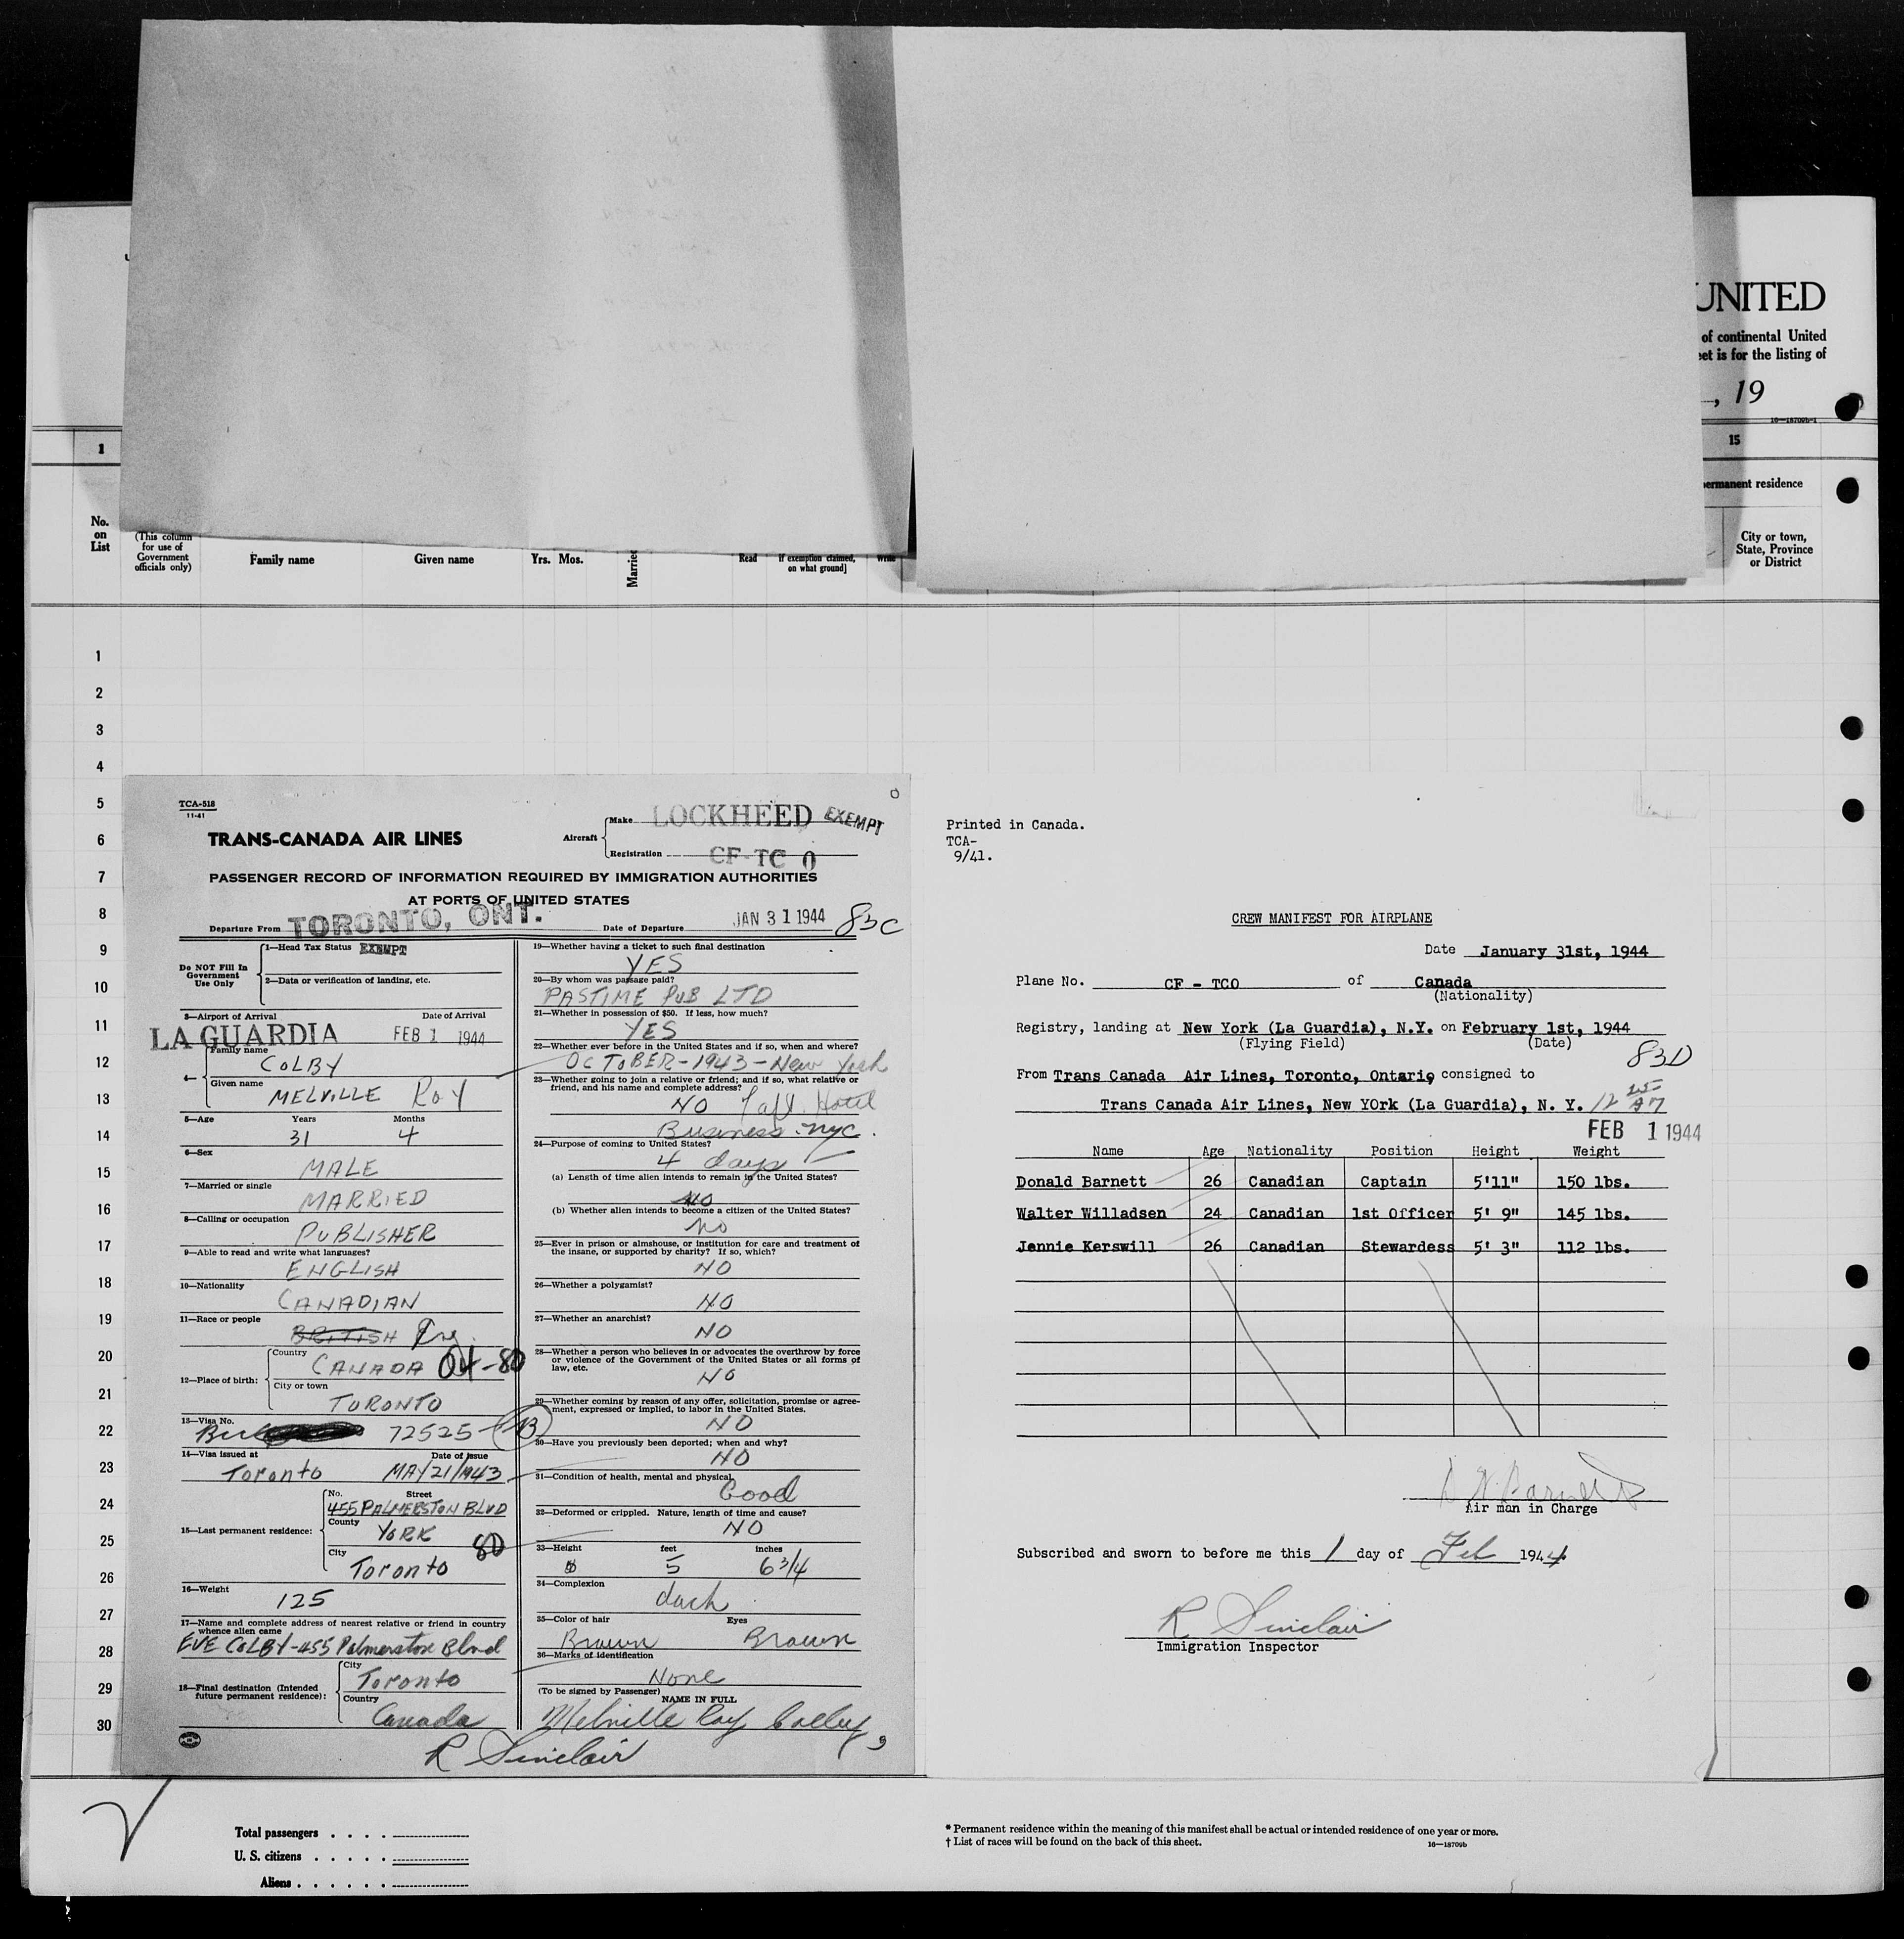 UNITED
of continental United
eet is for the listing of
, 19
16—18709b-1
1
15
ermanent residence
No.
on
List
(This column
for use of
Government
officials only)
Family name
Given name
Yrs. Mos.
Married
Read
If exemption claimed,
on what ground]
Write
City or town,
State, Province
or District
1
2
3
4
5
6
7
8
9
10
11
12
13
14
15
16
17
18
19
20
21
22
23
24
25
26
27
28
29
30
TCA-518
11-41
TRANS-CANADA AIR LINES
Aircraft
Make LOCKHEED EXEMPT
Registration CF-TC O
PASSENGER RECORD OF INFORMATION REQUIRED BY IMMIGRATION AUTHORITIES
AT PORTS OF UNITED STATES
Departure From TORONTO, ONT. Date of Departure JAN 31 1944 83C
Do NOT Fill In
Government
Use Only
1—Head Tax Status EXEMPT
2—Data or verification of landing, etc.
3—Airport of Arrival Date of Arrival
LA GUARDIA FEB 1 1944
4—
Family name
COLBY
Given name
MELVILLE Roy
5—Age Years Months
31 4
6—Sex
MALE
7—Married or single
MARRIED
8—Calling or occupation
PUBLISHER
9—Able to read and write what languages?
ENGLISH
10—Nationality
CANADIAN
11—Race or people
BRITISH
12—Place of birth:
Country
CANADA 04-80
City or town
TORONTO
13—Visa No.
72525 - 13
14—Visa issued at Date of issue
Toronto MAY 21/1943
15—Last permanent residence:
No. Street
455 PALMERSTON BLVD
County
YORK
City 80
Toronto
16—Weight
125
17—Name and complete address of nearest relative or friend in country
whence alien came
EVE COLBY-455 Palmerston Blvd
18—Final destination (Intended
future permanent residence):
City
Toronto
Country
Canada
19—Whether having a ticket to such final destination
YES
20—By whom was passage paid?
PASTIME PUB LTD
21—Whether in possession of $50. If less, how much?
YES
22—Whether ever before in the United States and if so, when and where?
OCTOBER-1943-New York
23—Whether going to join a relative or friend; and if so, what relative or
friend, and his name and complete address?
NO Taft Hotel
Business NYC.
24—Purpose of coming to United States?
4 days
(a) Length of time alien intends to remain in the United States?
NO
(b) Whether alien intends to become a citizen of the United States?
No
25—Ever in prison or almshouse, or institution for care and treatment of
the insane, or supported by charity? If so, which?
NO
26—Whether a polygamist?
NO
27—Whether an anarchist?
NO
28—Whether a person who believes in or advocates the overthrow by force
or violence of the Government of the United States or all forms of
law, etc.
NO
29—Whether coming by reason of any offer, solicitation, promise or agree-
ment, expressed or implied, to labor in the United States.
NO
30—Have you previously been deported; when and why?
NO
31—Condition of health, mental and physical,
Good
32—Deformed or crippled. Nature, length of time and cause?
NO
33—Height feet inches
5 6 3/4
34—Complexion
dark
35—Color of hair Eyes
Brown Brown
36—Marks of identification
None
(To be signed by Passenger)
NAME IN FULL
Melville Roy Colby
R Sinclair
Printed in Canada.
TCA-
9/41.
CREW MANIFEST FOR AIRPLANE
Date January 31st, 1944
Plane No. CF - TCO of Canada
(Nationality)
Registry, landing at New York (La Guardia), N.Y. on February 1st, 1944
(Flying Field) (Date)
83D
From Trans Canada Air Lines, Toronto, Ontario consigned to
Trans Canada Air Lines, New YOrk (La Guardia), N. Y.
FEB 1 1944
Name Age Nationality Position Height Weight
Donald Barnett 26 Canadian Captain 5'11" 150 lbs.
Walter Willadsen 24 Canadian 1st Officer 5' 9" 145 lbs.
Jennie Kerswill 26 Canadian Stewardess 5' 3" 112 lbs.
Barnett
Air man in Charge
Subscribed and sworn to before me this 1 day of Feb 1944
R Sinclair
Immigration Inspector
Total passengers . . . .
U. S. citizens . . . . .
Aliens . . . . . .
* Permanent residence within the meaning of this manifest shall be actual or intended residence of one year or more.
† List of races will be found on the back of this sheet.
16—18709b